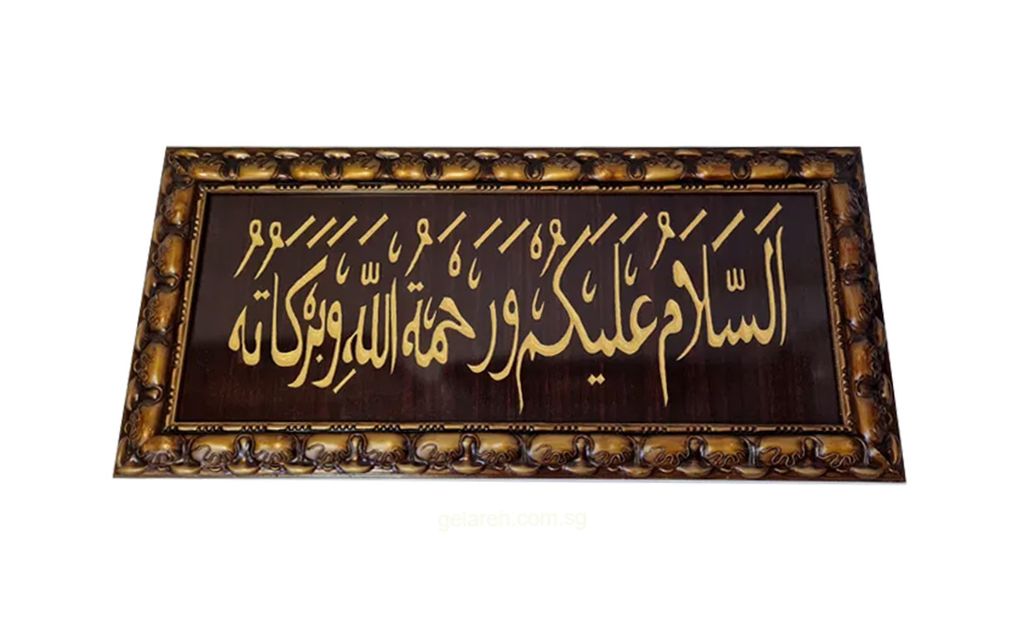 السَّلَامُ عَلَيْكُمْ وَرَحْمَةُ اللَّهِ وَبَرَكَاتُهُ
gelareh.com.sg